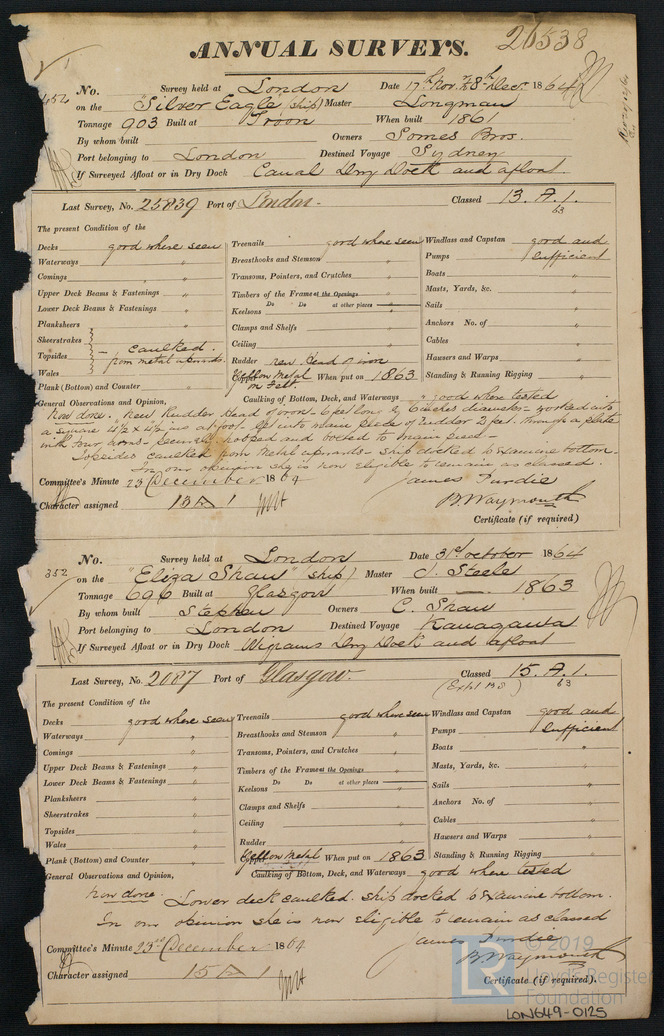 ANNUAL SURVEYS. 26538
No. Survey held at London Date 17th Nov. & 8th Decr. 1864
452 on the "Silver Eagle" (ship) Master Longman
Tonnage 903 Built at Troon When built 1861
By whom built Owners Somes Bros.
Port belonging to London Destined Voyage Sydney
If Surveyed Afloat or in Dry Dock Canal Dry Dock and afloat.
Last Survey, No. 25839 Port of London. Classed 13. A. 1.
63
The present Condition of the
Decks good where seen
Waterways "
Comings "
Upper Deck Beams & Fastenings "
Lower Deck Beams & Fastenings "
Planksheers
Sheerstrakes
Topsides
Wales
caulked.
from metal upwards.
Plank (Bottom) and Counter "
Treenails good where seen
Breasthooks and Stemson "
Transoms, Pointers, and Crutches "
Timbers of the Frame at the Openings "
Do Do at other places
Keelsons "
Clamps and Shelfs "
Ceiling "
Rudder new head of iron
Copper Yellow Metal When put on 1863
on Felt.
Windlass and Capstan good and
Pumps sufficient
Boats "
Masts, Yards, &c. "
Sails "
Anchors No. of "
Cables "
Hausers and Warps "
Standing & Running Rigging "
Caulking of Bottom, Deck, and Waterways " good where tested
General Observations and Opinion,
Now done. New Rudder Head of iron - 6 feet long & 6 inches diameter - worked into
a square 4½ x 4½ ins at foot - let into main piece of rudder 2 feet. through a plate
with four arms - securely hooped and bolted to main piece -
Topsides caulked from Metal upwards - ship docked to examine bottom -
In our opinion she is now eligible to remain as classed.
Committee's Minute 23 December 1864
James Purdie
Character assigned 13 A 1
B. Waymouth
Certificate (if required)
No. Survey held at London Date 31st October 1864
352 on the "Eliza Shaw" (ship) Master J. Steele
Tonnage 696 Built at Glasgow When built 1863
By whom built Stephen Owners C. Shaw
Port belonging to London Destined Voyage Kanagawa
If Surveyed Afloat or in Dry Dock Wigrams Dry Dock and afloat
Last Survey, No. 2087 Port of Glasgow Classed 15. A. 1.
63
The present Condition of the
Decks good where seen
Waterways "
Comings "
Upper Deck Beams & Fastenings "
Lower Deck Beams & Fastenings "
Planksheers "
Sheerstrakes "
Topsides "
Wales "
Plank (Bottom) and Counter "
Treenails good where seen
Breasthooks and Stemson "
Transoms, Pointers, and Crutches "
Timbers of the Frame at the Openings "
Do Do at other places
Keelsons "
Clamps and Shelfs "
Ceiling "
Rudder "
Copper Yellow Metal When put on 1863
Windlass and Capstan good and
Pumps sufficient
Boats "
Masts, Yards, &c. "
Sails "
Anchors No. of "
Cables "
Hausers and Warps "
Standing & Running Rigging "
Caulking of Bottom, Deck, and Waterways good where tested
General Observations and Opinion,
Now done. Lower deck caulked. ship docked to examine bottom.
In our opinion she is now eligible to remain as classed
Committee's Minute 23rd December 1864
James Purdie
B. Waymouth
Character assigned 15 A 1
Certificate (if required).
© 2019
LR
Lloyd's Register
Foundation
LON649-0125